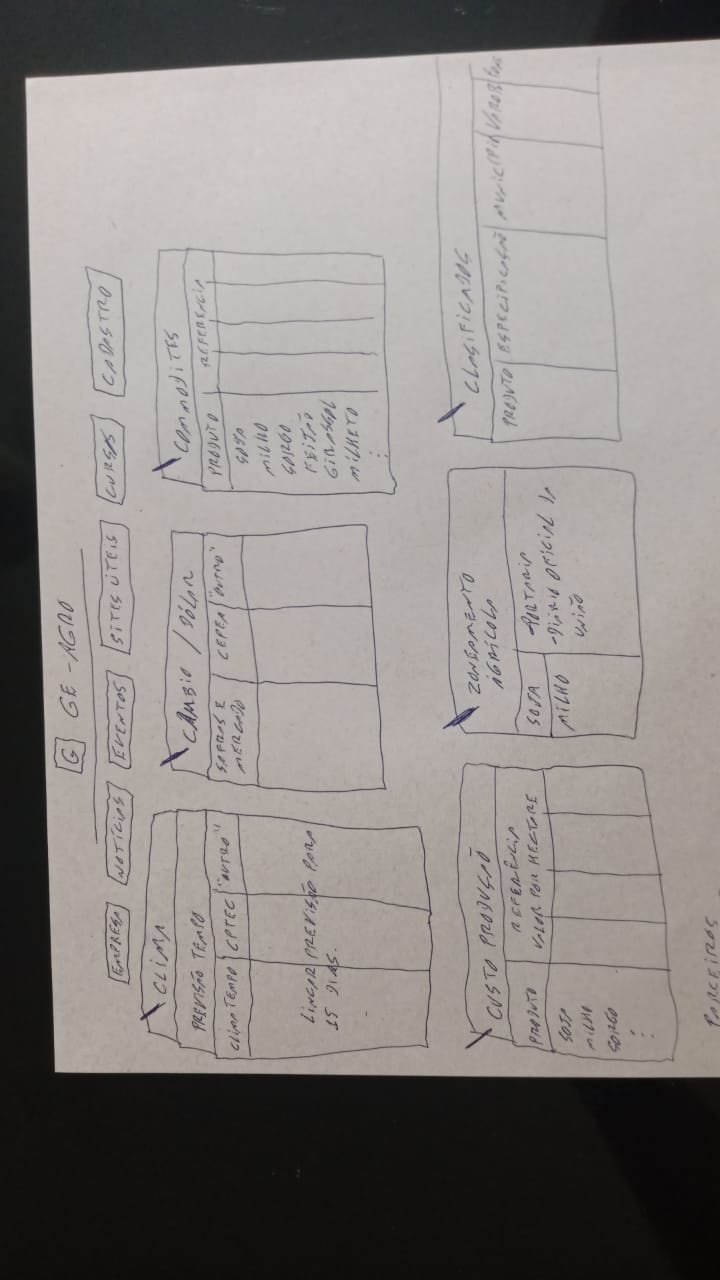 G GE-AGRO
EMPRESA NOTÍCIAS EVENTOS SITES ÚTEIS CURSAS CADASTRO
CLIMA
PREVISÃO TEMPO
CLIMATEMPO CPTEC "OUTRO"
LINCAR PREVISÃO PARA
15 DIAS.
CÂMBIO / DÓLAR
SAFRAS E CEPEA "OUTRO"
MERCADO
COMMODITES
PRODUTO REFERÊNCIA
SOJA
MILHO
SORGO
FEIJÃO
GIRASSOL
MILHETO
CUSTO PRODUSÃO
REFERÊNCIA
PRODUTO VALOR POR HECTARE
SOJA
MILHO
SORGO
ZONEAMENTO
AGRÍCOLA
SOJA -PORTARIA
MILHO -DIÁRIO OFICIAL DA
UNIÃO
CLASIFICADOS
PRODUTO ESPECIFICAÇÃO
PARCEIROS